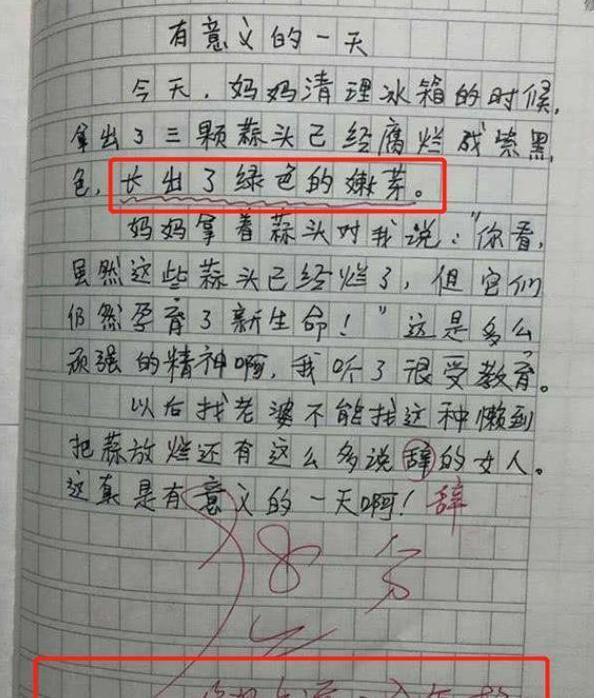 有意义的一天
今天，妈妈清理冰箱的时候，
拿出了三颗蒜头已经腐烂成紫黑
色，长出了绿色的嫩芽。
妈妈拿着蒜头对我说："你看，
虽然这些蒜头已经烂了，但它们
仍然孕育了新生命！"这是多么
顽强的精神啊，我听了很受教育。
以后找老婆不能找这种懒到
把蒜放烂还有这么多说辞的女人。
这真是有意义的一天啊！辞
38分